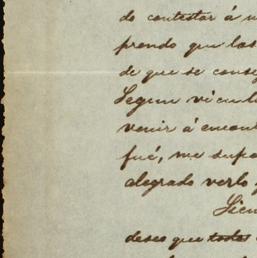 do contestar á u
prendo que las
de que se conse
Segun vi en la
venir á encont
fué, me supo
alegrado verlo
deseo que todos